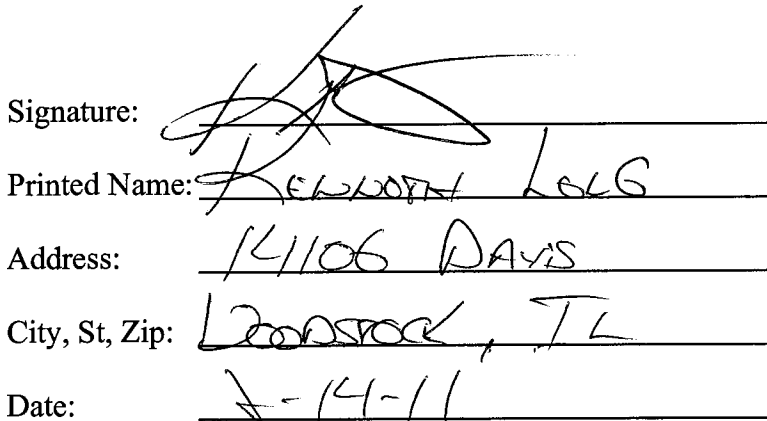 Signature:
Printed Name: KENNETH LONG
Address: 14106 DAVIS
City, St, Zip: WOODSTOCK, IL
Date: 2-14-11